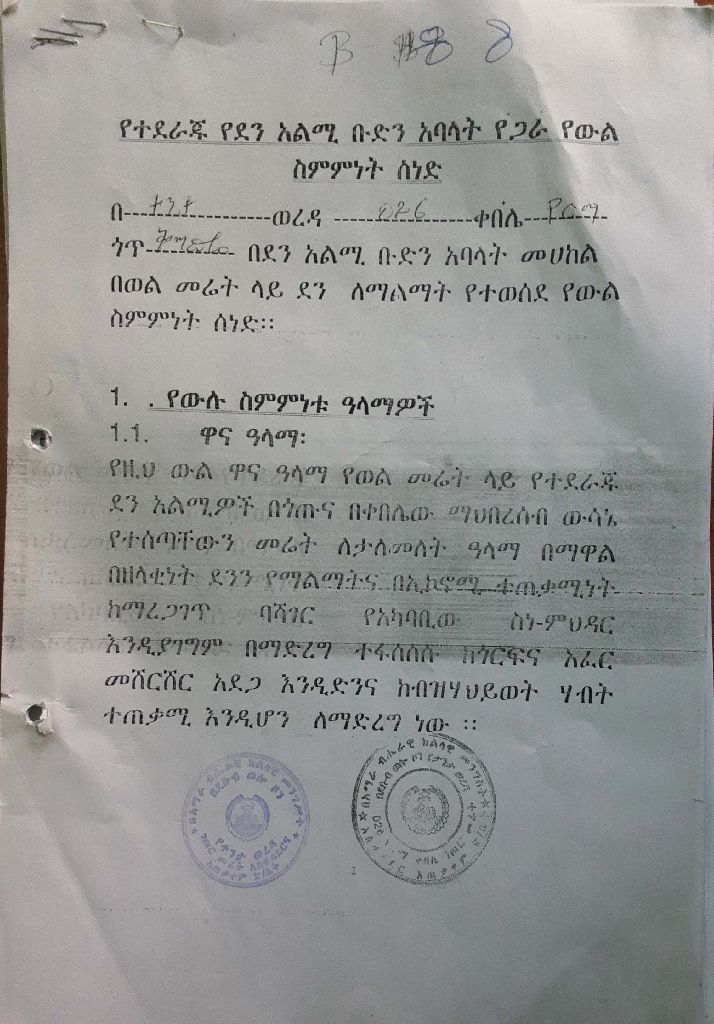 B
8
የተደራጁ የደን አልሚ ቡድን አባላት የጋራ የውል
ስምምነት ሰነድ
በ---ተንታ-----------ወረዳ ------------026-------ቀበሌ---
ጎጥ- በደን አልሚ ቡድን አባላት መሀከል
በወል መሬት ላይ ደን ለማልማት የተወሰደ የውል
ስምምነት ሰነድ፡፡
1. . የውሉ ስምምነቱ ዓላማዎች
1.1. ዋና ዓላማ፡
የዚህ ውል ዋና ዓላማ የወል መሬት ላይ የተደራጁ
ደን አልሚዎች በጎጡና በቀበሌው ማህበረሰብ ውሳኔ
የተሰጣቸውን መሬት ለታለመለት ዓላማ በማዋል
በዘላቂነት ደንን የማልማትና በኢኮኖሚ ተጠቃሚነት
ከማረጋገጥ ባሻገር የአካባቢው ስነ-ምህዳር
እንዲያገግም በማድረግ ተፋሰሰሱ ከጎርፍና አፈር
መሸርሸር አደጋ እንዲድንና ከብዝሃህይወት ሃብት
ተጠቃሚ እንዲሆን ለማድረግ ነው ፡፡
በአማራ ብሔራዊ ክልላዊ መንግሥት
በደቡብ ወሎ ዞን
የተንታ ወረዳ
በአማራ ብሔራዊ ክልላዊ መንግስት
በደቡብ ወሎ ዞን የተንታ ወረዳ
1